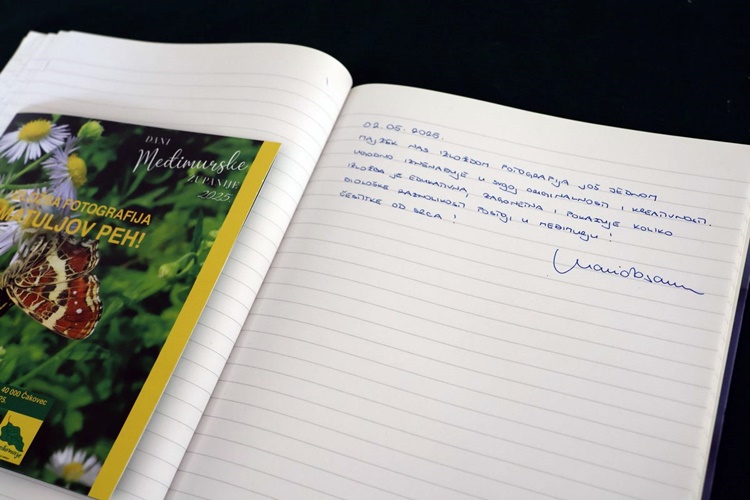 DANI
Međimurske
ŽUPANIJE
2025.
FOTOGRAFIJA
PEH!
40 000 Čakovec
02.05.2025.
NAS IZLOŽBOM FOTOGRAFIJA JOŠ JEDNOM
UGODNO IZNENAĐUJE U SVOJ ORIGINALNOSTI I KREATIVNOSTI.
IZLOŽBA JE EDUKATIVNA, ZAGONETNA I POKAZUJE KOLIKO
BIOLOŠKE RAZNOLIKOSTI POSTOJI U MEĐIMURJU!
ČESTITKE OD SRCA!